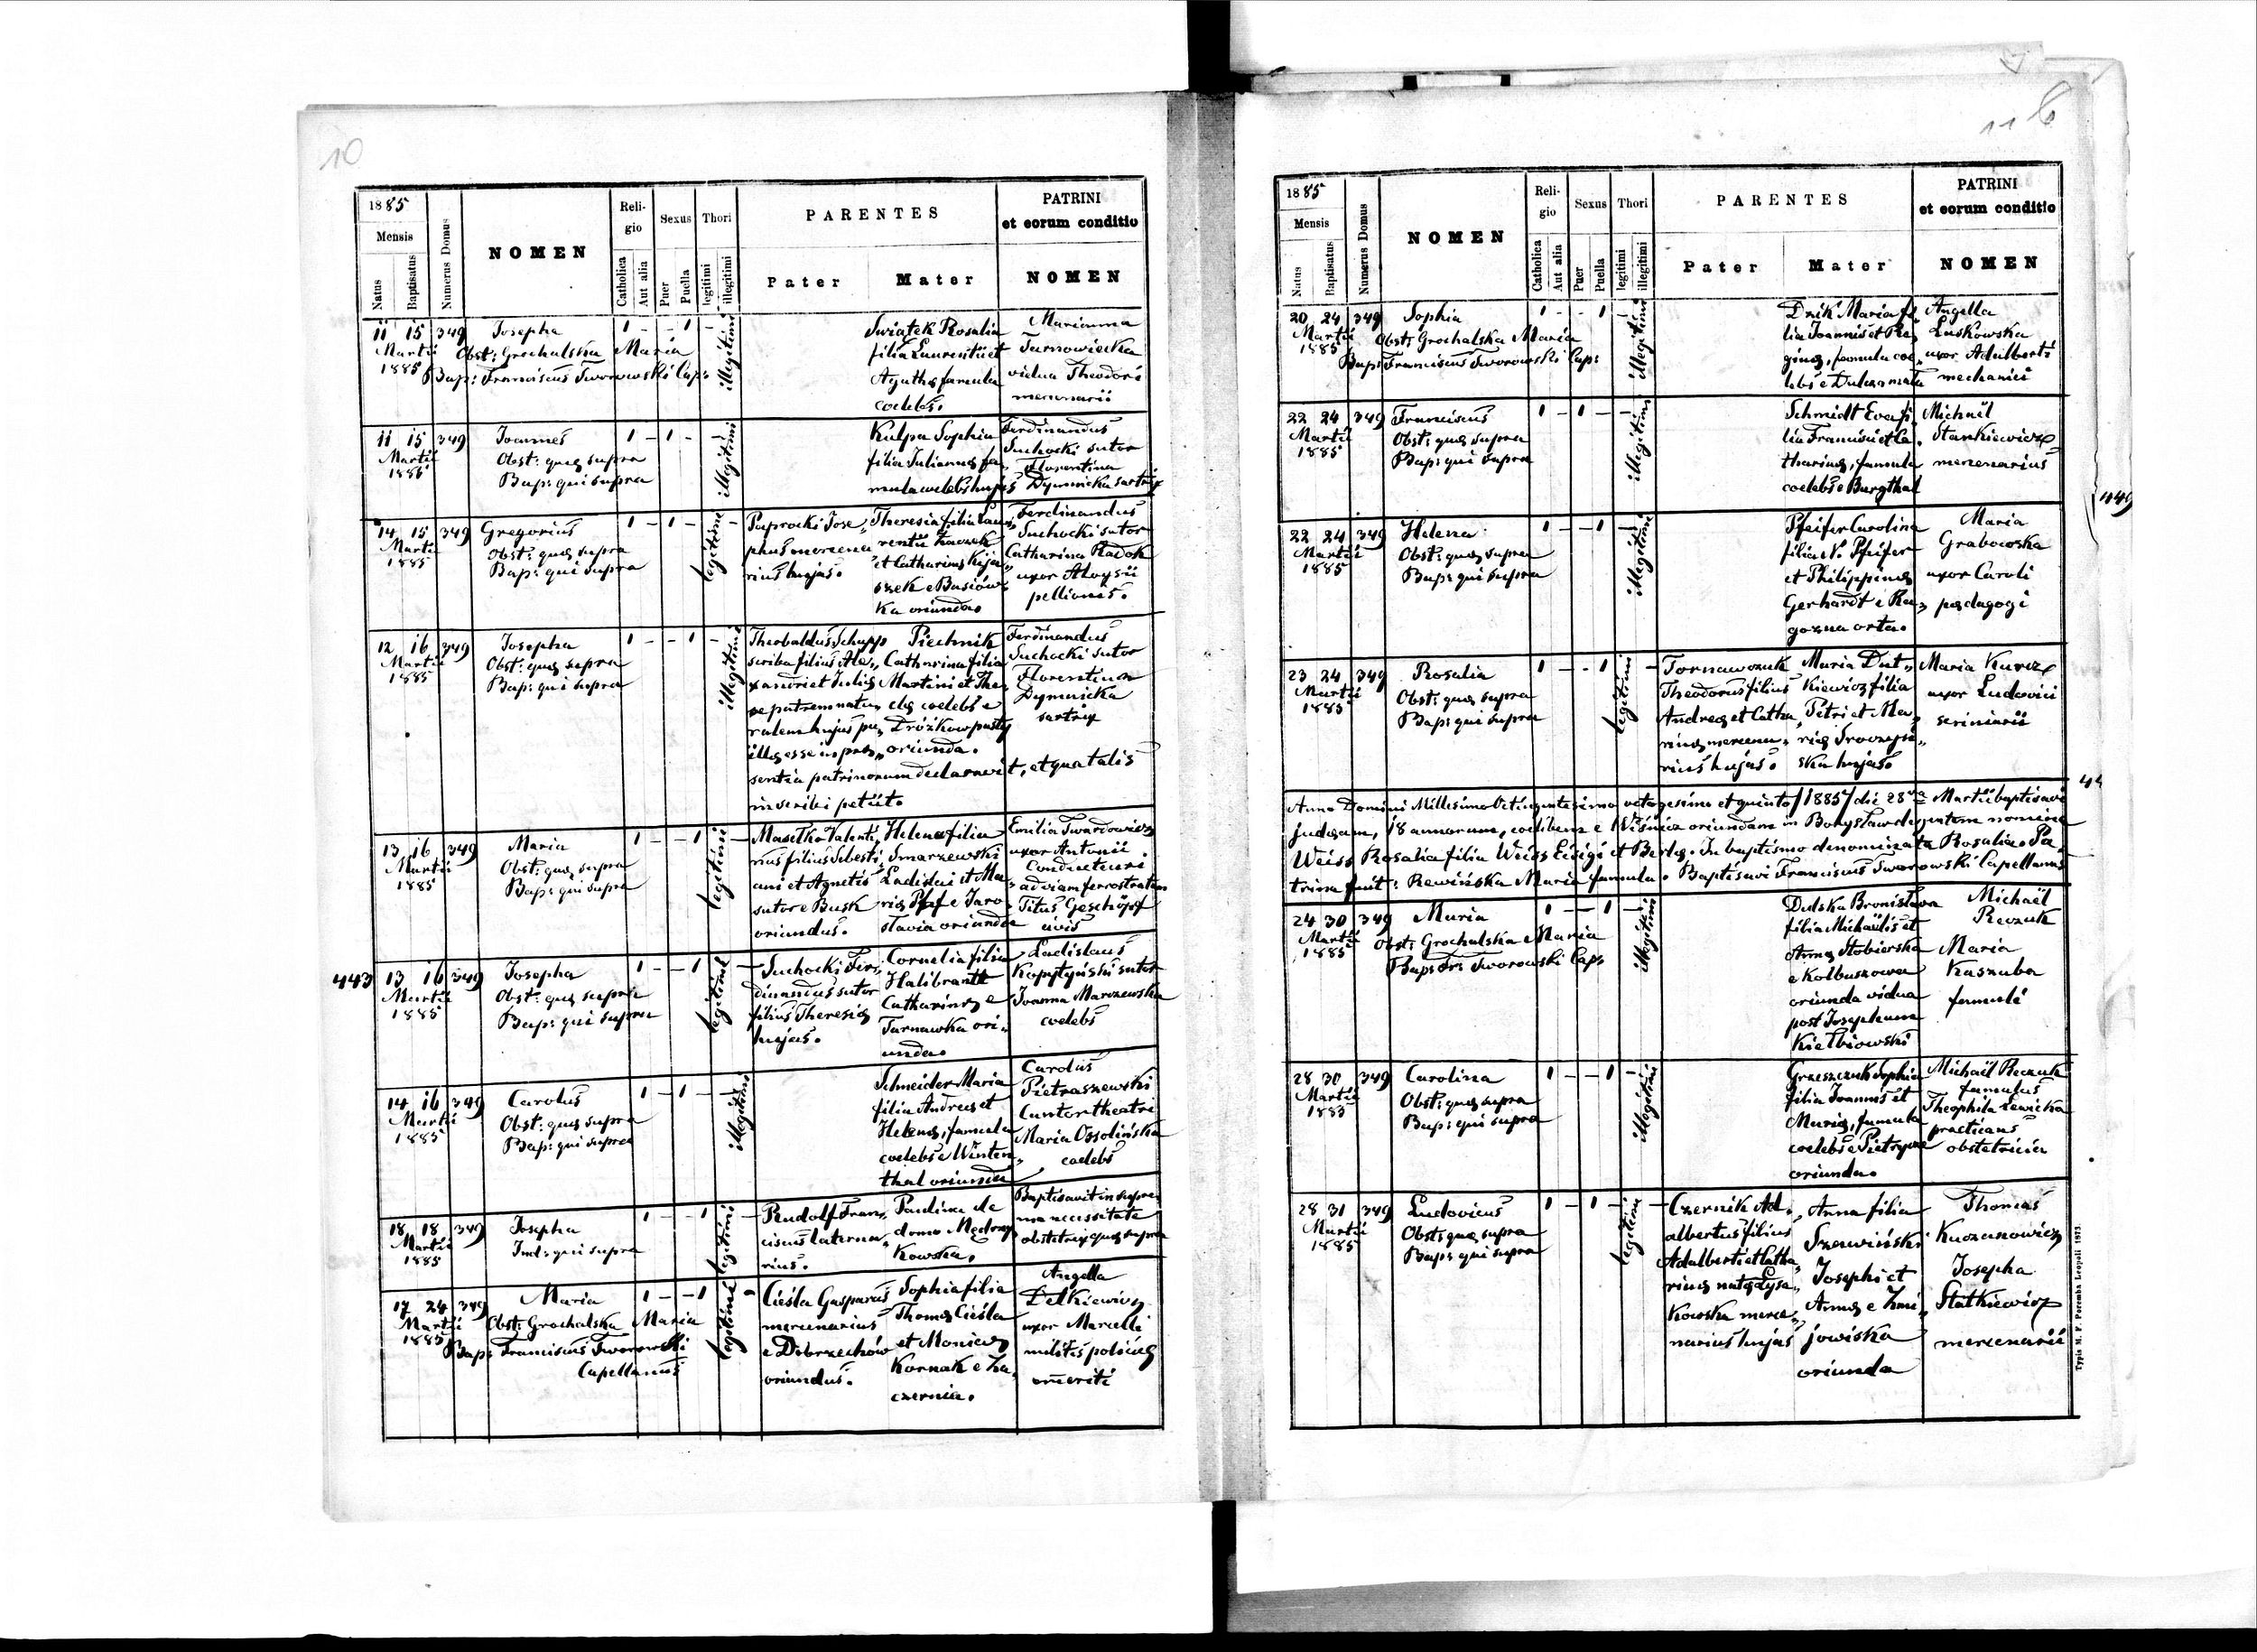 10
1885
Mensis
Natus
Baptisatus
Numerus Domus
NOMEN
Religio
Catholica
Aut alia
Sexus
Puer
Puella
Thori
legitimi
illegitimi
PARENTES
Pater
Mater
PATRINI
et eorum conditio
NOMEN
11 15 349 Josepha 1 - - 1 -
Martii
1885
Obst: Grochalska Maria
Bap: Franciscus Tworowski Cap:
illegitimi
Swiątek Rosalia
filia Laurentii et
Agathę famula
coelebs.
Marianna
Tarnowiecka
vidua Theodori
mercenarii
11 15 349 Joannes 1 - 1 - -
Martii
1885
Obst: quę supra
Bap: qui supra
illegitimi
Kulpa Sophia
filia Juliannę fa„
mula coelebs hujas
Ferdinandus
Suchocki sutor
Florentina
Dymnicka sartrix
14 15 349 Gregorius 1 - 1 - -
Martii
1885
Obst: quę supra
Bap: qui supra
legitimi
Paprocki Jose„
phus mercena
rius hujas.
Theresia filia Lau„
rentii Kaczek
et Catharinę Kija„
szek e Busiów„
ka oriunda.
Ferdinandus
Suchocki sutor
Catharina Radoń
uxor Aloysii
pellionis.
12 16 349 Josepha 1 - - 1 -
Martii
1885
Obst: quę supra
Bap: qui supra
illegitimi
Theobaldus Schupp
scriba filius Ale„
xandri et Julię
se patrem natu„
ralem hujus pu„
ellę esse in prę„
sentia patrinorum declaravit, et qua talis
inscribi petiit.
Piechnik
Catharina filia
Martini et The„
clę coelebs e
Dróżków pusty
oriunda.
Ferdinandus
Suchocki sutor
Florentina
Dymnicka
sartrix
13 16 349 Maria 1 - - 1 -
Martii
1885
Obst: quę supra
Bap: qui supra
legitimi
Masełko Valenti„
nus filius Sebasti„
ani et Agnetis
sutor e Busk
oriundus.
Helena filia
Smarzewski
Ladislai et Ma„
rię Pfaf e Jaro„
slavia oriunda
Emilia Twardowicz
uxor Antonii
Conducteuri
ad viam ferrostratam
Titus Geschöpf
civis
443
13 16 349 Josepha 1 - - 1 -
Martii
1885
Obst: quę supra
Bap: qui supra
legitimi
Suchocki Fer„
dinandus sutor
filius Theresię
hujas.
Cornelia filia
Halibrantt
Catharinę e
Tarnawka ori„
unda.
Ladislaus
Kopytyński sutor
Joanna Marczewska
coelebs
14 16 349 Carolus 1 - 1 - -
Martii
1885
Obst: quę supra
Bap: qui supra
illegitimi
Schneider Maria
filia Andreę et
Helenę, famula
coelebs e Winten„
thal oriunda
Carolus
Pietraszewski
Cantor theatri
Maria Ossolińska
coelebs
18 18 349 Josepha 1 - - 1 -
Martii
1885
Ind: qui supra
legitimi
Rudolf Fran„
ciscus laterna„
rius.
Paulina de
domo Mędrzy„
kowska.
Baptisavit in supre„
ma necessitate
obstetrix quę supra
17 24 349 Maria 1 - - 1 -
Martii
1885
Obst: Grochalska Maria
Bap: Franciscus Tworowski
Capellanus
legitimi
Cieśla Gasparus
mercenarius
e Dobrzechów
oriundus.
Sophia filia
Thomę Cieśla
et Monicę
Kornak e Za„
czernia.
Angella
Detkiewicz
uxor Marcelli
militis policię
emeriti
11 6
1885
Mensis
Natus
Baptisatus
Numerus Domus
NOMEN
Religio
Catholica
Aut alia
Sexus
Puer
Puella
Thori
legitimi
illegitimi
PARENTES
Pater
Mater
PATRINI
et eorum conditio
NOMEN
20 24 349 Sophia 1 - - 1 -
Martii
1885
Obst: Grochalska Maria
Bap: Franciscus Tworowski Cap:
illegitimi
Dzik Maria fi„
lia Joannis et Re„
ginę, famula coe„
lebs e
Angella
Luskowska
uxor Adalberti
mechanici
22 24 349 Franciscus 1 - 1 - -
Martii
1885
Obst: quę supra
Bap: qui supra
illegitimi
Schmidt Eva fi„
lia Francisci et Ca„
tharinę, famula
coelebs e Burgthal
Michaël
Stankiewicz
mercenarius
449
22 24 349 Helena 1 - - 1 -
Martii
1885
Obst: quę supra
Bap: qui supra
illegitimi
Pfeifer Carolina
filia N. Pfeifer
et Philippinę
Gerhardt e Ra„
gozna orta.
Maria
Grabowska
uxor Caroli
pędagogi
23 24 349 Rosalia 1 - - 1 -
Martii
1885
Obst: quę supra
Bap: qui supra
legitimi
Tornawczuk
Theodorus filius
Andreę et Catha„
rinę mercena„
rius hujas.
Maria Dut„
kiewicz filia
Petri et Ma„
rię Sroczyń„
ska hujas.
Maria Kurcz
uxor Ludovici
scriniarii
44
Anno Domini Millesimo Octingentesimo octogesimo et quinto /1885/ die 28va Martii baptisavi
Judęam, 18 annorum, coelibem e Wiśnicz oriundam in Borysław degentem nomine
Weiss Rosalia filia Weiss Eisigi et Berlę. In baptismo denominata Rosalia. Pa„
trina fuit: Rewińska Maria famula. Baptisavi Franciscus Tworowski Capellanus
24 30 349 Maria 1 - - 1 -
Martii
1885
Obst: Grochalska Maria
Bap: Fr: Tworowski Cap:
illegitimi
Dulska Bronisława
filia Michaëlis et
Annę Stobierska
e Kolbuszowa
oriunda vidua
post Josephum
Kiełbiowski
Michaël
Reczuk
Maria
Kaszuba
famuli
28 30 349 Carolina 1 - - 1 -
Martii
1885
Obst: quę supra
Bap: qui supra
illegitimi
Grzeszczuk Sophia
filia Joannis et
Marię, famula
coelebs e Pietrycze
oriunda.
Michaël Reczuk
famulus
Theophila Lewicka
practicans
obstetricia
28 31 349 Ludovicus 1 - 1 - -
Martii
1885
Obst: quę supra
Bap: qui supra
legitimi
Czernik Ad„
albertus filius
Adalberti et Catha„
rinę natę Łysa„
kowska merce„
narius hujas
Anna filia
Szawiński
Josephi et
Annę e Żmi„
jowiska
oriunda
Thomas
Kuczanowicz
Josepha
Statkiewicz
mercenarii
Typis M. F. Poremba Leopoli 1873.